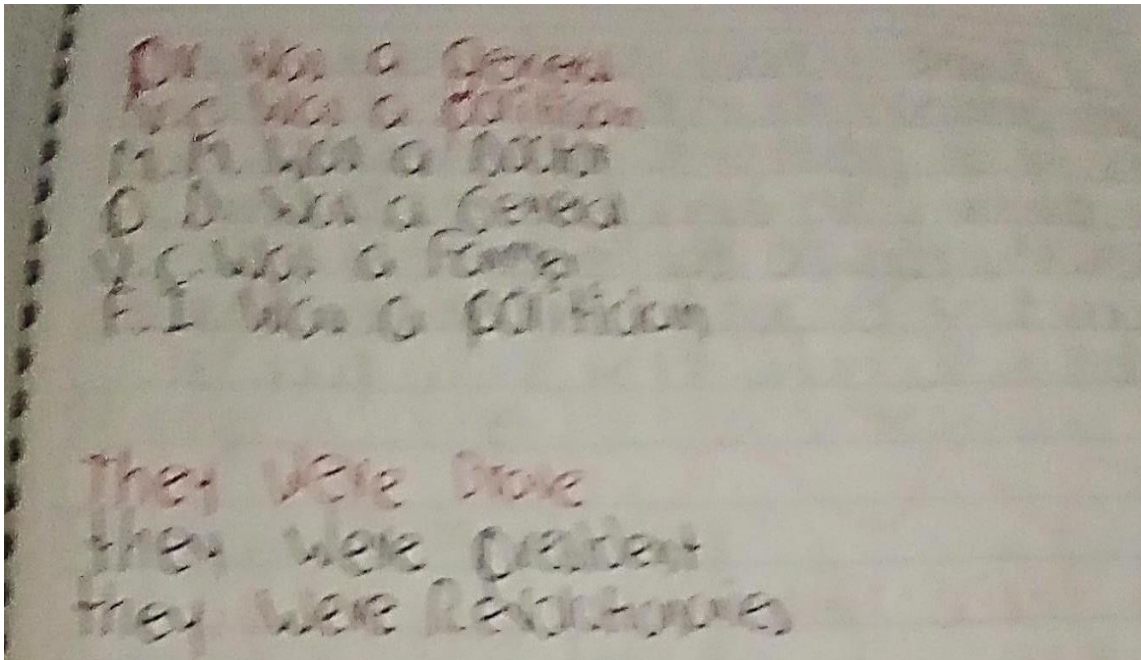 was a General
was a politician
M.M. was a
O was a General
V.C. was a
F. I was a politician
They were brave
they were president
they were Revolutionaries